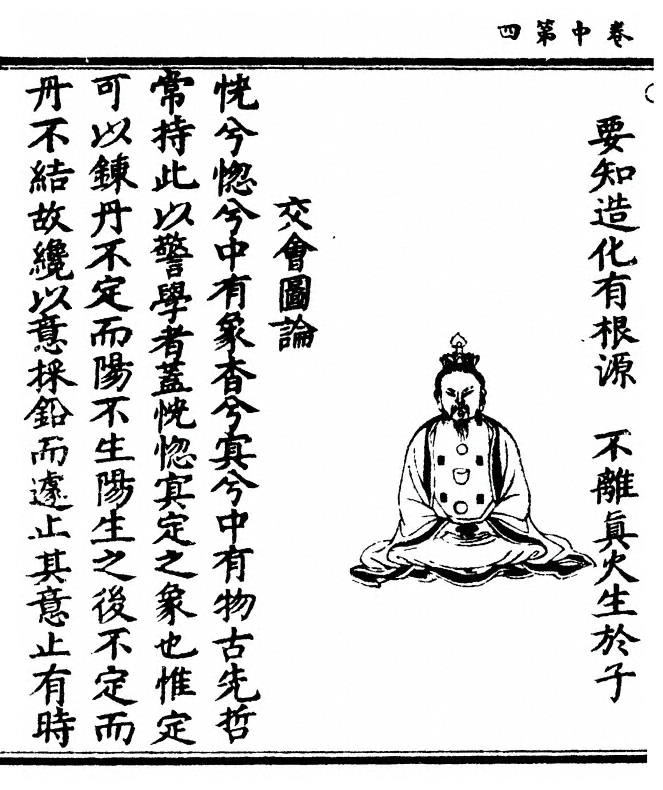 卷中第四
要知造化有根源　不離眞火生於子
交會圖論
恍兮惚兮中有象杳兮冥兮中有物古先哲
常持此以警學者蓋恍惚冥定之象也惟定
可以鍊丹不定而陽不生陽生之後不定而
丹不結故纔以意採鉛而遽止其意止有時